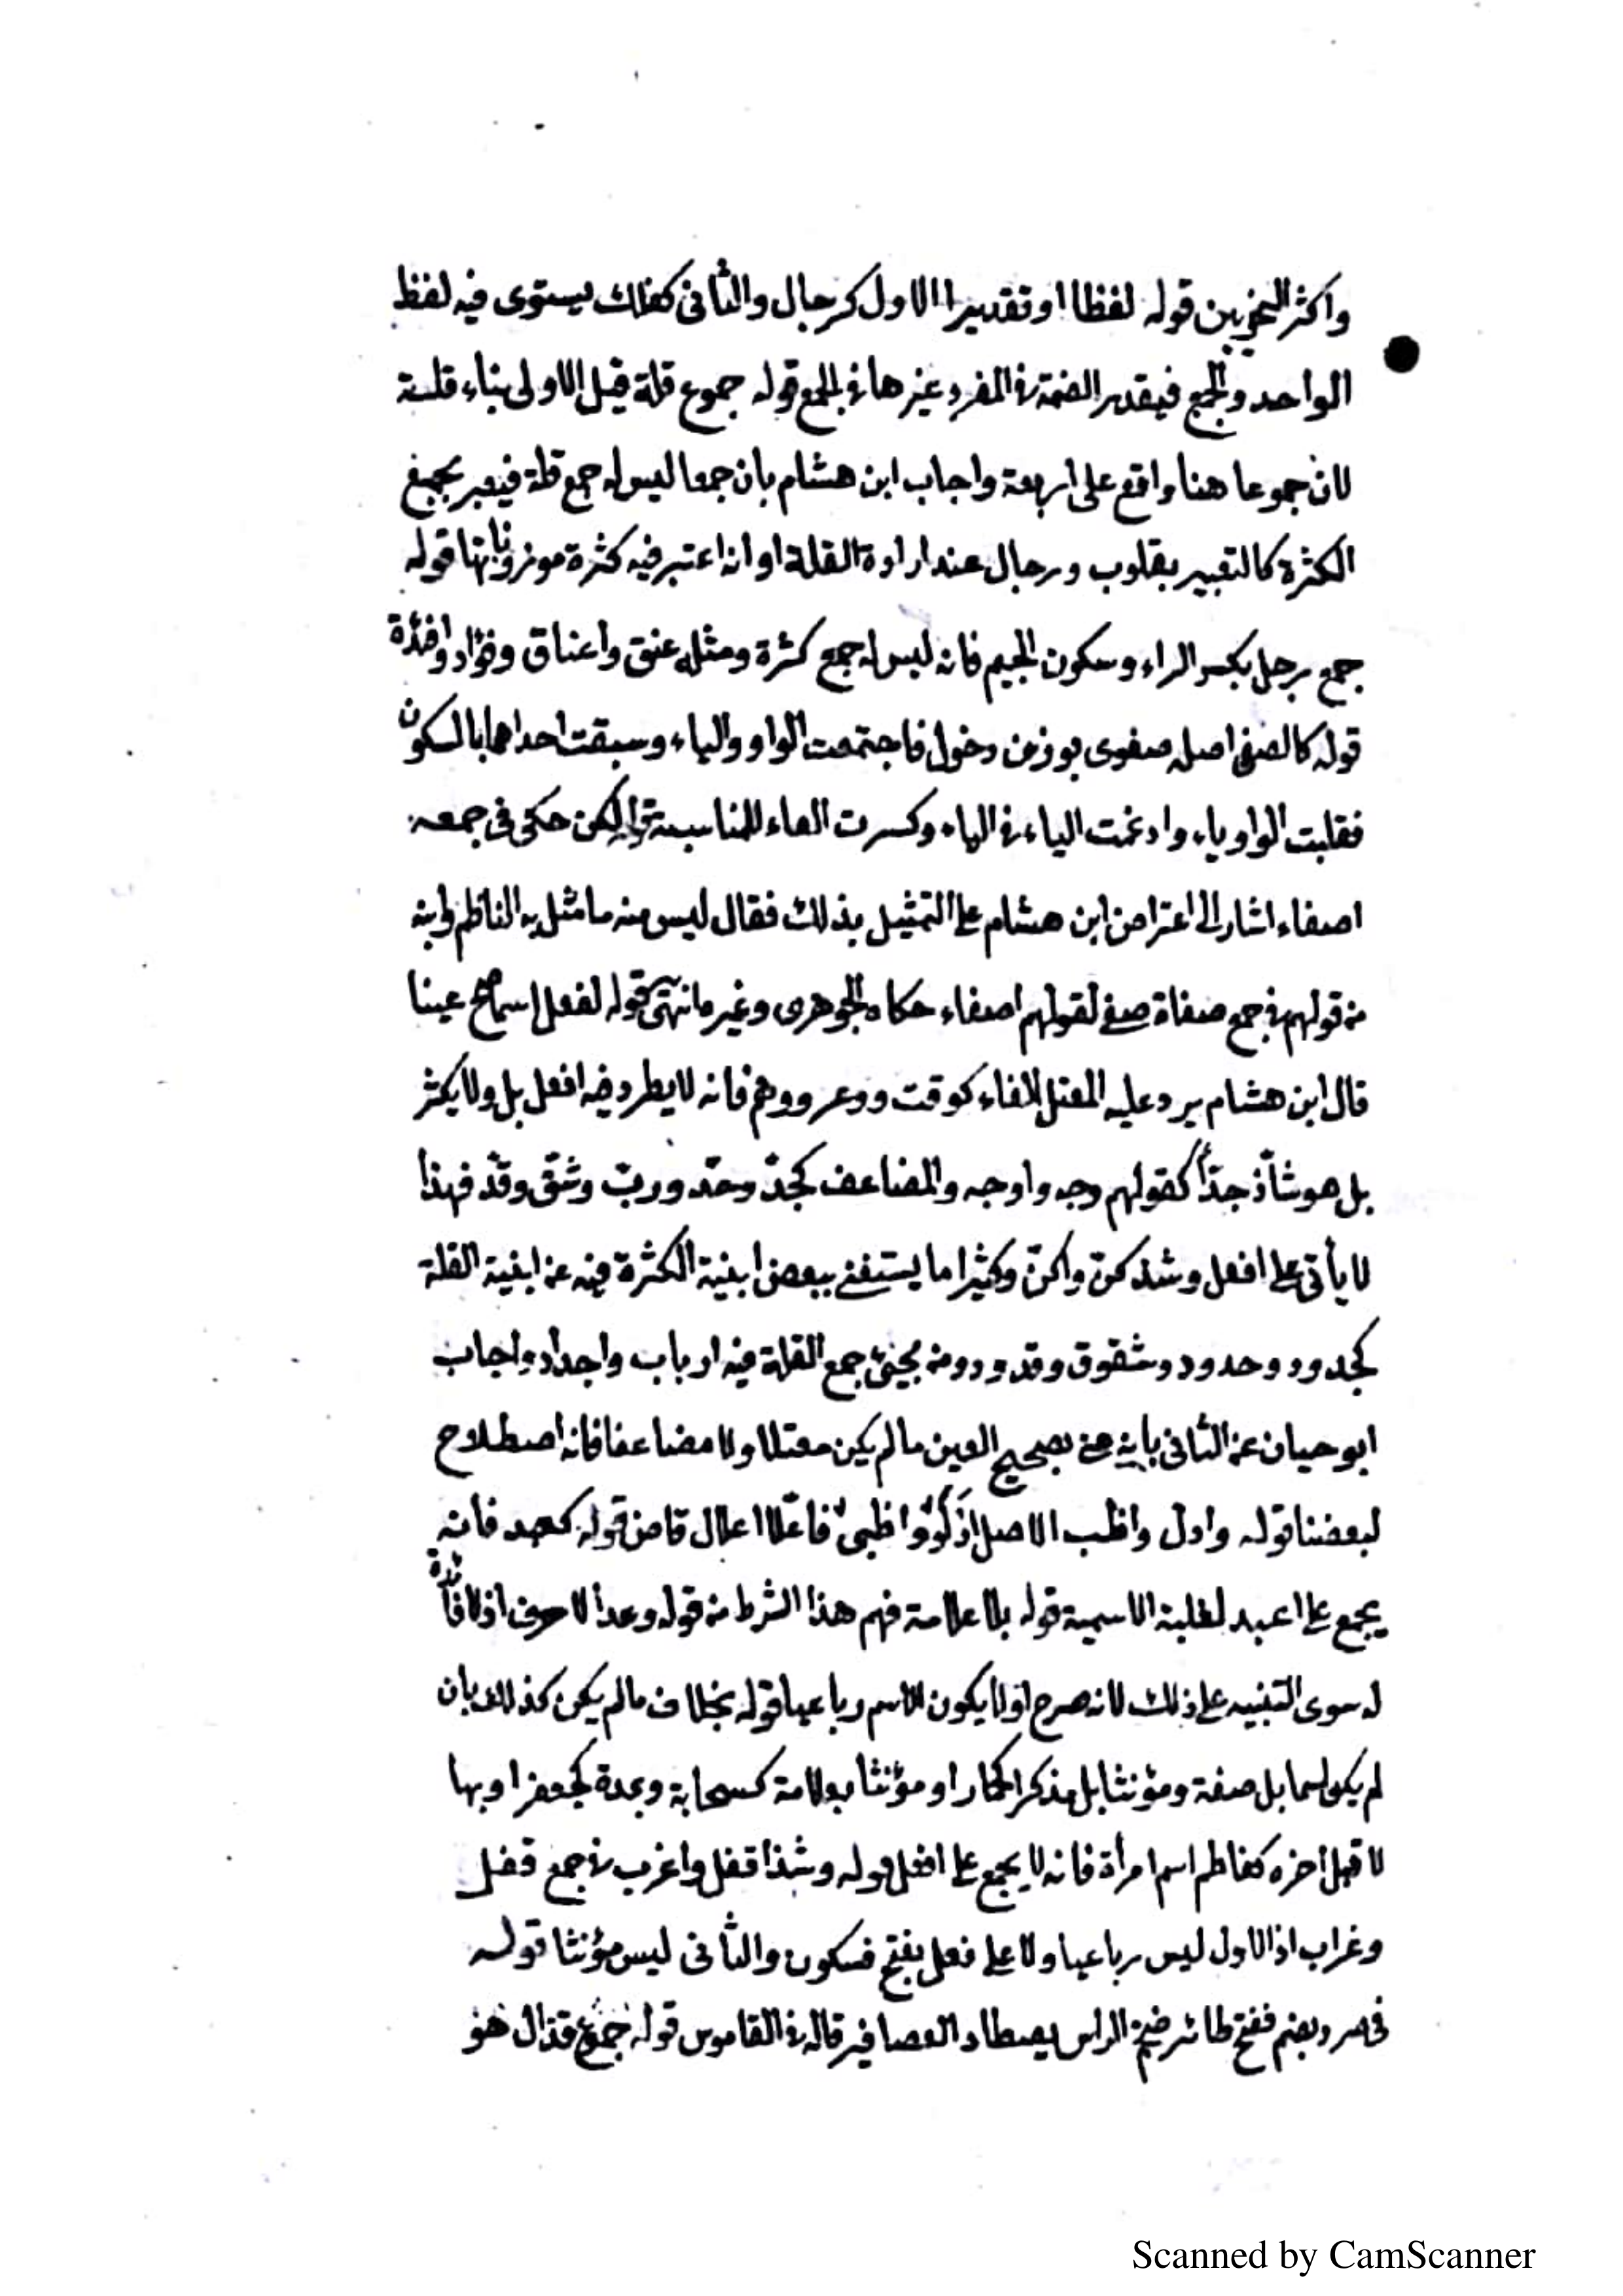 واكثر النحويين قوله لفظا او تقديرا الاول كرجال والثانى كفلك يستوى فيه لفظ
الواحد والجمع فيقدر الضمة في المفرد غيرها في الجمع قوله جموع قلة قيل الاولى بناء قلة
لان جموعا هنا واقع على اربعة واجاب ابن هشام بان جمعا ليس له جمع قلة فيعبر بجمع
الكثرة كالتعبير بقلوب ورجال عند ارادة القلة او انه اعتبر فيه كثرة موزوناتها قوله
جمع رجل بكسر الراء وسكون الجيم فانه ليس له جمع كثرة ومثله عنق واعناق وفؤاد وافئدة
قوله كالصفى اصله صفوى بوزن دخول فاجتمعت الواو والياء وسبقت احداهما بالسكون
فقلبت الواو ياء وادغمت الياء في الياء وكسرت الفاء للمناسبة قوله لكن حكى فى جمعه
اصفاء اشار الى اعتراض ابن هشام على التمثيل بذلك فقال ليس منه ما مثل به الناظم وابنه
من قولهم في جمع صفاة صفى لقولهم اصفاء حكاه الجوهرى وغيره انتهى قوله لفعل اسما صح عينا
قال ابن هشام يرد عليه المعتل الفاء كوقت ووعر ووهم فانه لا يطرد فيه افعل بل ولا يكثر
بل هو شاذ جدّاً كقولهم وجه واوجه والمضاعف كجدّ وحدّ وربّ وشقّ وقدّ فهذا
لا يأتى على افعل وشذ كفّ واكفّ وكثيرا ما يستغنى ببعض ابنية الكثرة فيه عن ابنية القلة
كجدود وحدود وشقوق وقدود ومن مجئ جمع القلة فيه ارباب واجداد واجاب
ابو حيان عن الثانى بانه عنى بصحيح العين مالم يكن معتلا ولا مضاعفا فانه اصطلاح
لبعضنا قوله وادل واظب الاصل ادلُوٌ واظبىٌ فاعلّا اعلال قاض قوله كعبد فانه
يجمع على اعبد لغلبة الاسمية قوله بلا علامة فهم هذا الشرط من قوله وعد الاحرف اذ لا فائدة
له سوى التنبيه على ذلك لانه صرح اولا بكون الاسم رباعيا قوله بخلاف مالم يكن كذلك بان
لم يكن اسما بل صفة ومؤنثا بل مذكرا كحمار او مؤنثا بعلامة كسحابة وبمدة كجعفر او بها
لا قبل اخره كفاطم اسم امرأة فانه لا يجمع على افعل قوله وشذ اقفل واغرب في جمع قفل
وغراب اذ الاول ليس رباعيا ولا على فعل بفتح فسكون والثانى ليس مؤنثا قوله
فى صرد بضم ففتح طائر ضخم الراس يصطاد العصافير قاله في القاموس قوله جمع قذال هو
Scanned by CamScanner